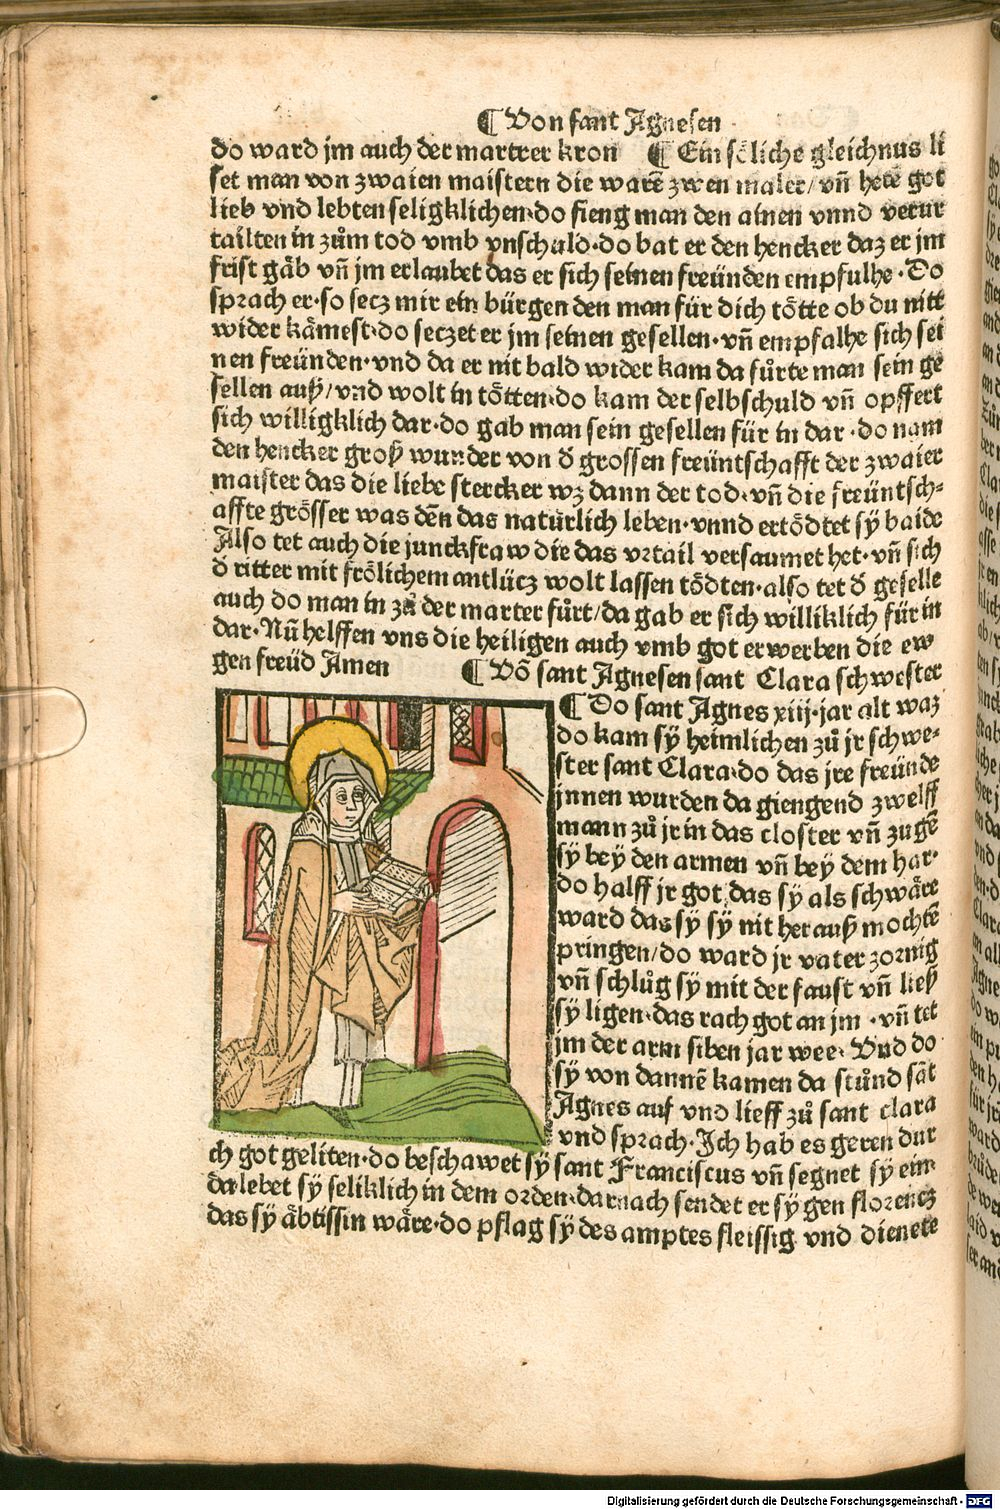 ¶ Von sant Agnesen
do ward jm auch der martrer kron ¶ Ein söliche gleichnus li
set man von zwaien maistern die warē zwen maler/ vñ hete got
lieb vnd lebten seligklichen·do fieng man den ainen vnnd verur
tailten in zům tod vmb vnschuld·do bat er den hencker daz er jm
frist gäb vñ jm erlaubet das er sich seinen freünden empfulhe·Do
sprach er·so secz mir ein bürgen den man für dich tötte ob du nitt
wider kämest·do seczet er jm seinen gesellen·vñ empfalhe sich sei
nen freünden·vnd da er nit bald wider kam da fůrte man sein ge
sellen auß/vnd wolt in tötten·do kam der selbschuld vñ opffert
sich willigklich dar·do gab man sein gesellen für in dar·do nam
den hencker groß wunder von d̕ grossen freüntschafft der zwaier
maister das die liebe stercker wz dann der tod·vñ die freüntsch⸗
affte grösser was deñ das natürlich leben·vnnd ertödtet sy baide
Also tet auch die junckfraw die das vrtail versaumet het·vñ sich
d̕ ritter mit frölichem antlücz wolt lassen tödten·also tet d̕ geselle
auch do man in zů der marter fůrt/da gab er sich williklich für in
dar·Nũ helffen vns die heiligen auch vmb got erwerben die ew
gen freüd Amen ¶ Võ sant Agnesen sant Clara schwester
¶ Do sant Agnes xiij·jar alt waz
do kam sÿ heimlichen zů jr schwe⸗
ster sant Clara·do das jre freünde
jnnen wurden da giengend zwelff
mann zů jr in das closter vñ zugẽ
sÿ beÿ den armen vñ beÿ dem har·
do halff jr got das sÿ als schwäre
ward das sÿ sÿ nit herauß mochtẽ
pringen/do ward jr vater zornig
vñ schlůg sÿ mit der faust vñ ließ
sÿ ligen·das rach got an jm·vñ tet
jm der arm siben jar wee·Vnd do
sÿ von dannẽ kamen da stůnd sãt
Agnes auf vnd lieff zů sant clara
vnd sprach·Ich hab es geren dur
ch got geliten·do beschawet sÿ sant Franciscus vñ segnet sÿ ein·
da lebet sÿ seliklich in dem orden·darnach sendet er sÿ gen florencz
das sÿ äbtissin wäre·do pflag sÿ des amptes fleissig vnd dienete
Digitalisierung gefördert durch die Deutsche Forschungsgemeinschaft - DFG